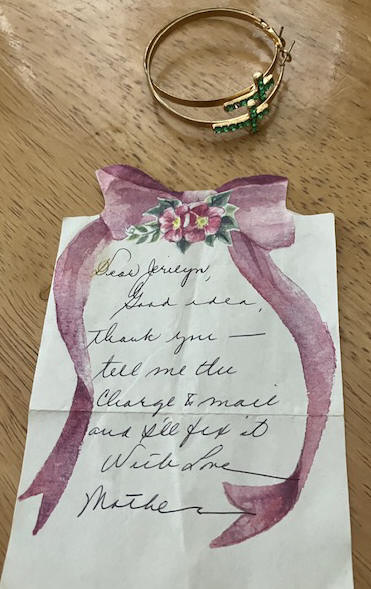 Dear Jerilyn,
Good idea,
thank you —
tell me the
Charge & mail
and I'll fix it
With Love
Mother